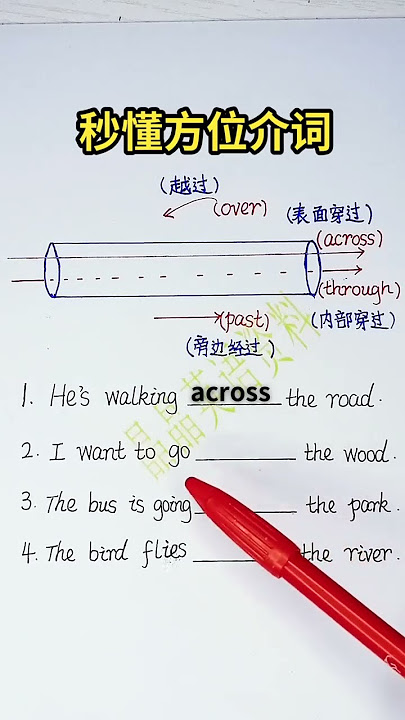 秒懂方位介词
(越过)
(over)
(表面穿过)
(across)
(through)
(past)
(内部穿过)
(旁边经过)
晶晶英语资料
1. He's walking across the road.
2. I want to go ________ the wood.
3. The bus is going ________ the park.
4. The bird flies ________ the river.